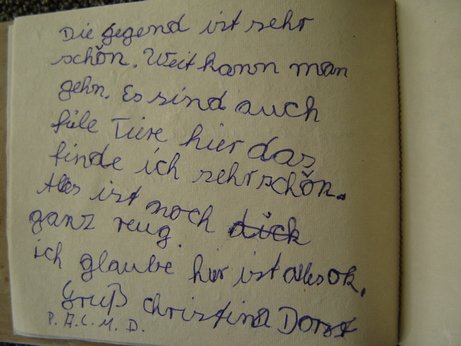 Die gegend ist sehr
schön. Weit kann man
gehn. Es sind auch
fiele Tiere hier das
finde ich sehr schön.
Alles ist noch dick
ganz reug.
ich glaube hir ist alles ok.
Gruß Christina Dorst
P. A. C. M. D.